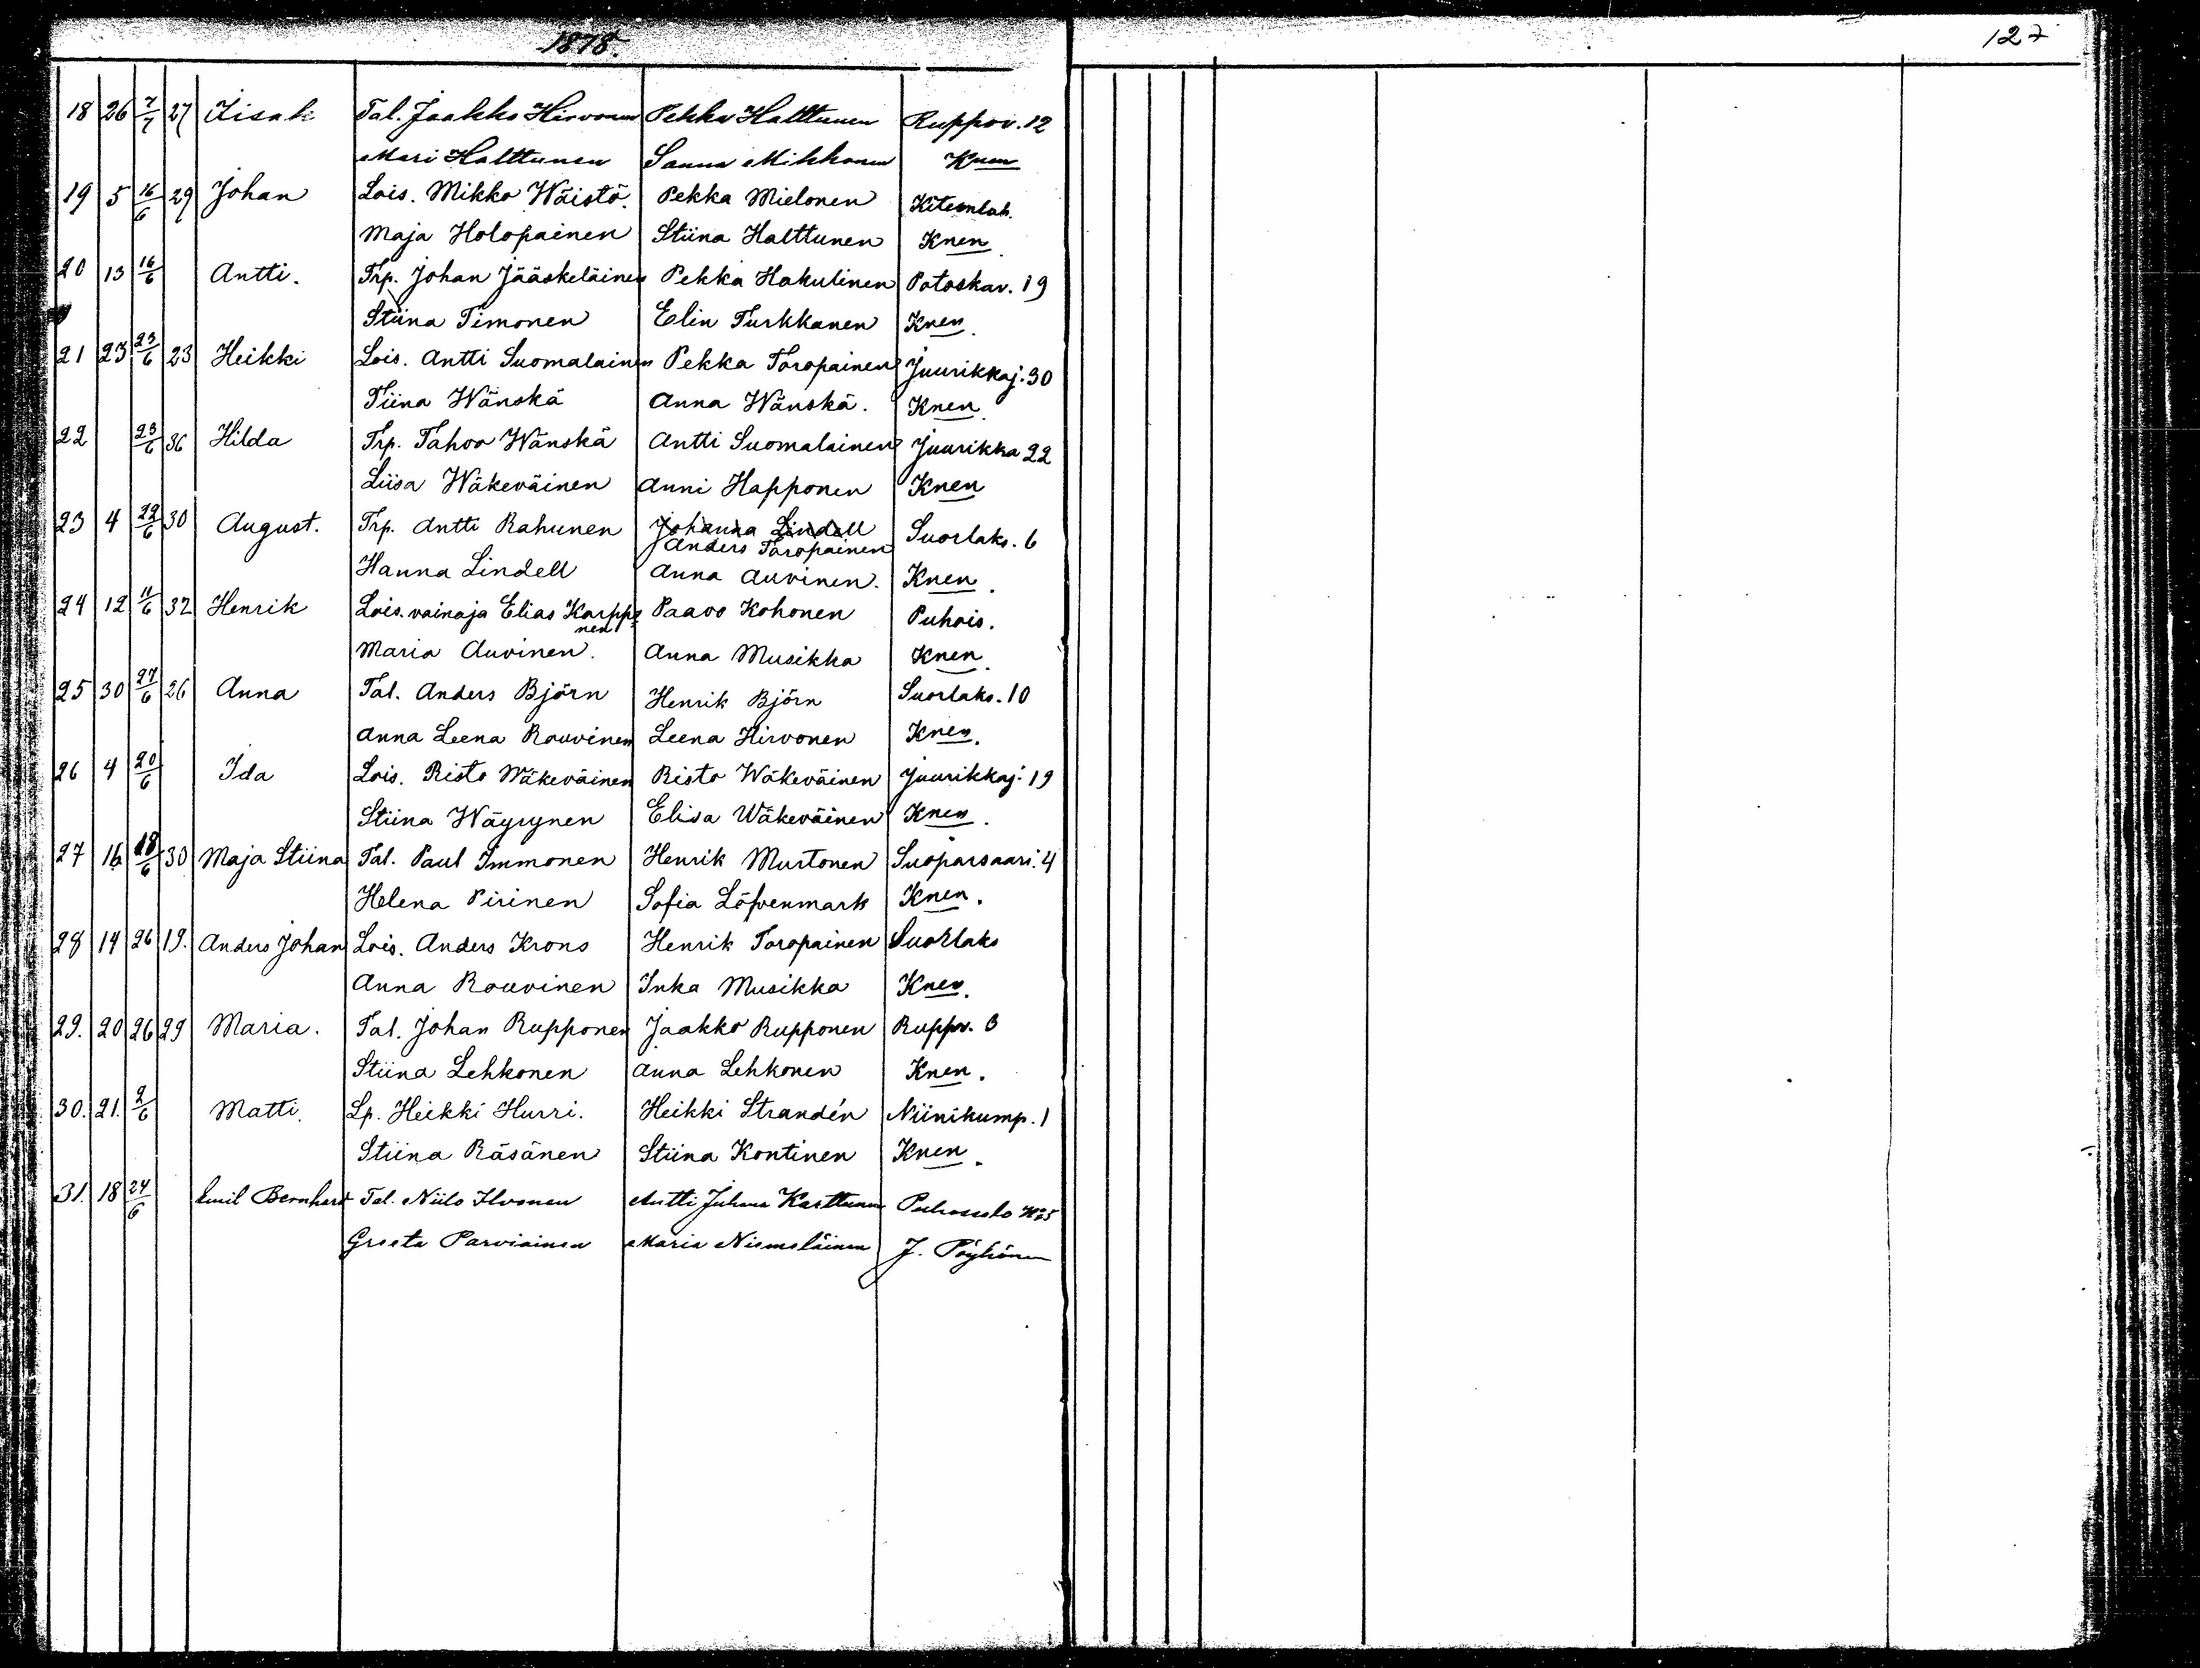 1878.
127
18 26 7/7 27 Iisak Tal. Jaakko Hirvonen Pekka Halttunen Ruppov. 12
Mari Halttunen Sanna Mikkonen Knen
19 5 16/6 29 Johan Lois. Mikko Wäistö. Pekka Mielonen Kiteenlah.
Maja Holopainen Stiina Halttunen Knen
20 13 16/6 Antti. Trp. Johan Jääskeläinen Pekka Hakulinen Potoskav. 19
Stiina Timonen Elin Turkkanen Knen.
21 23 23/6 23 Heikki Lois. Antti Suomalainen Pekka Toropainen Juurikkaj. 30
Tiina Wänskä Anna Wänskä. Knen.
22 23/6 36 Hilda Trp. Tahvo Wänskä Antti Suomalainen Juurikka 22
Liisa Wäkeväinen Anni Happonen Knen
23 4 22/6 30 August. Trp. Antti Rahunen Johanna Lindell Suorlaks. 6
Anders Toropainen
Hanna Lindell Anna Auvinen. Knen.
24 12 11/6 32 Henrik Lois. vainaja Elias Karppi Paavo Kohonen Puhois.
nen
Maria Auvinen. Anna Musikka Knen.
25 30 27/6 26 Anna Tal. Anders Björn Henrik Björn Suorlaks. 10
Anna Leena Rouvinen Leena Hirvonen Knen.
26 4 20/6 Ida Lois. Risto Wäkeväinen Risto Wäkeväinen Juurikkaj. 19
Stiina Wäyrynen Elisa Wäkeväinen Knen.
27 16 18/6 30 Maja Stiina Tal. Paul Immonen Henrik Murtonen Suoparsaari. 4
Helena Pirinen Sofia Löfvenmark Knen.
28 14 26 19. Anders Johan Lois. Anders Krons Henrik Toropainen Suorlaks
Anna Rouvinen Inka Musikka Knen.
29. 20 26 29 Maria. Tal. Johan Rupponen Jaakko Rupponen Ruppv. 3
Stiina Lehkonen Anna Lehkonen Knen.
30. 21. 2/6 Matti. Lp. Heikki Hurri. Heikki Strandén Niinikump. 1
Stiina Räsänen Stiina Kontinen Knen.
31. 18 24/6 Emil Bernhard Tal. Niilo Ilvonen Antti Juhana Karttunen No 5
Greeta Parviainen Maria Niemeläinen J. Pöyhönen